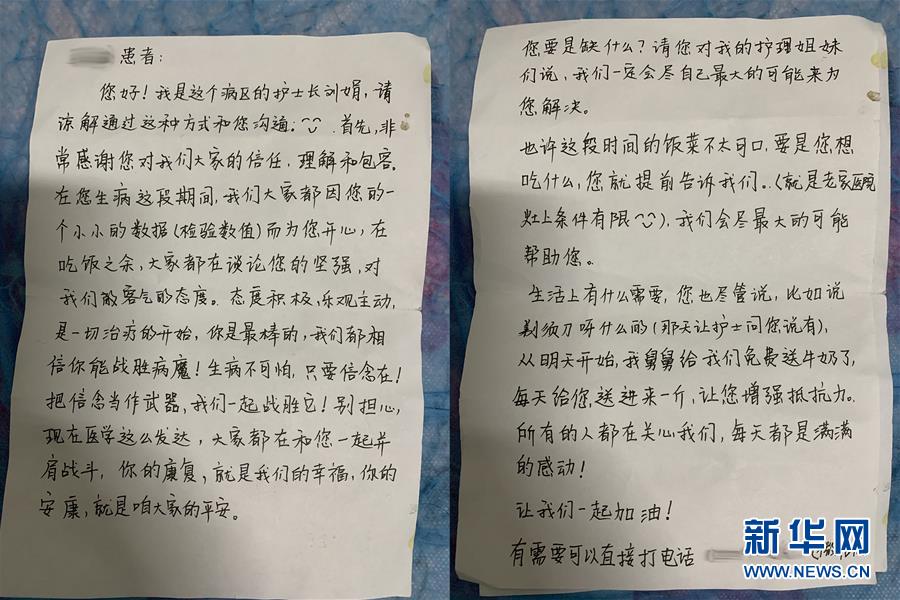 患者：
您好！我是这个病区的护士长刘娟，请
谅解通过这种方式和您沟通。首先，非
常感谢您对我们大家的信任、理解和包容。
在您生病这段期间，我们大家都因您的一
个小小的数据（检验数值）而为您开心，在
吃饭之余，大家都在谈论您的坚强，对
我们般客气的态度。态度积极，乐观主动，
是一切治疗的开始，你是最棒的，我们都相
信你能战胜病魔！生病不可怕，只要信念在！
把信念当作武器，我们一起战胜它！别担心，
现在医学这么发达，大家都在和您一起并
肩战斗，你的康复、就是我们的幸福，你的
安康，就是咱大家的平安。
您要是缺什么？请您对我的护理姐妹
们说，我们一定会尽自己最大的可能来为
您解决。
也许这段时间的饭菜不太可口，要是您想
吃什么，您就提前告诉我们。（就是老家医院
灶上条件有限），我们会尽最大的可能
帮助您。
生活上有什么需要，您也尽管说，比如说
剃须刀呀什么的（那天让护士问您说有），
从明天开始，我舅舅给我们免费送牛奶了，
每天给您送进来一斤，让您增强抵抗力。
所有的人都在关心我们，每天都是满满
的感动！
让我们一起加油！
有需要可以直接打电话
新华网
WWW.NEWS.CN